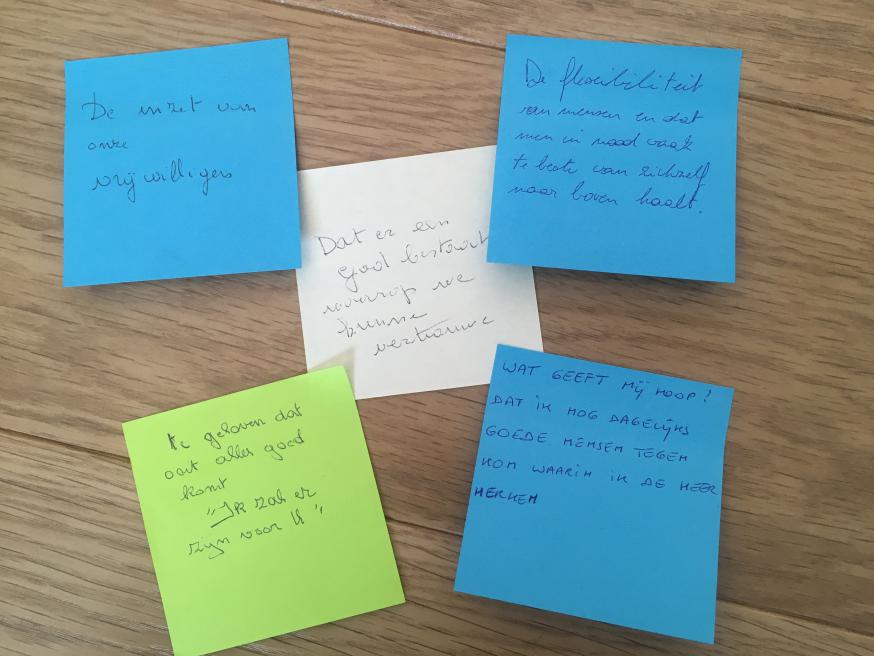 De inzet van
onze
vrijwilligers
De flexibiliteit
van mensen en dat
men in nood vaak
te beste van zichzelf
naar boven haalt.
Dat er een
God bestaat
waarop we
kunne
vertrouwe
te geloven dat
ooit alles goed
komt
"Ik zal er
zijn voor U"
WAT GEEFT MIJ HOOP?
DAT IK NOG DAGELIJKS
GOEDE MENSEN TEGEN
KOM WAARIN IK DE HEER
HERKEN